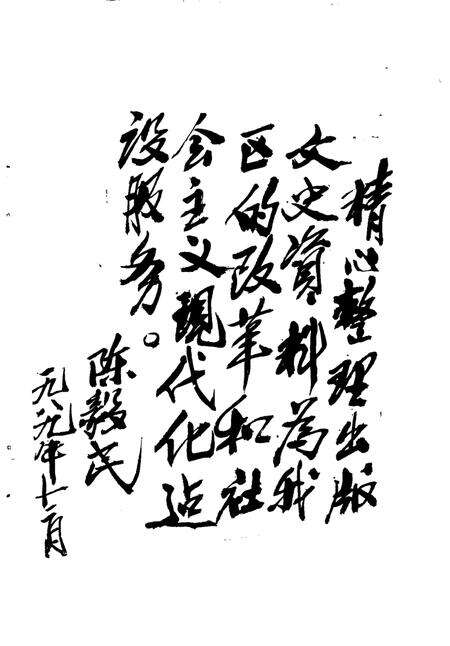 精心整理出版
文史資料为我
区的改革和社
会主义現代化建
设服务。
陈毅民
一九八九年十一月